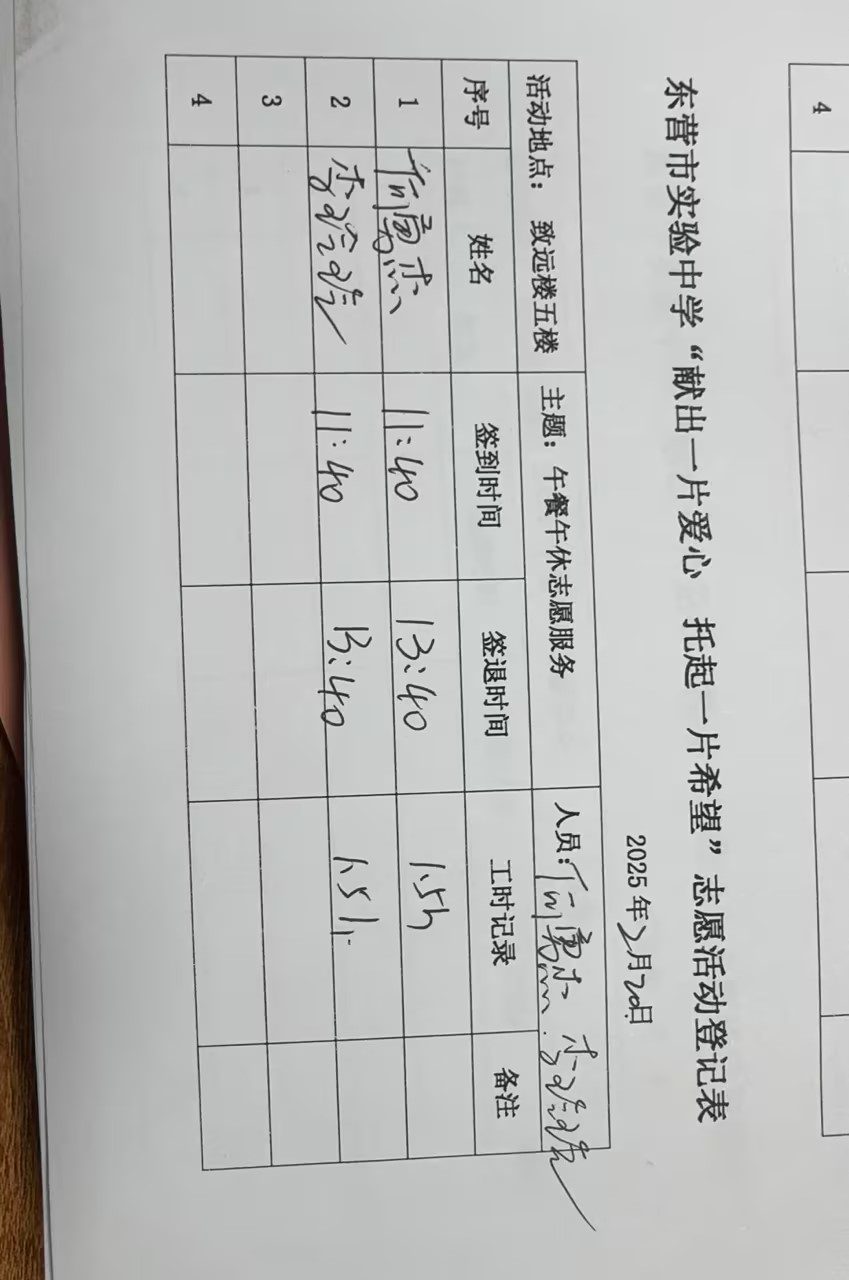 4
东营市实验中学“献出一片爱心 托起一片希望”志愿活动登记表
2025年2月20日
活动地点： 致远楼五楼 主题：午餐午休志愿服务 人员：
序号 姓名 签到时间 签退时间 工时记录 备注
1 11:40 13:40 1.5h
2 11:40 13:40 1.5h
3
4